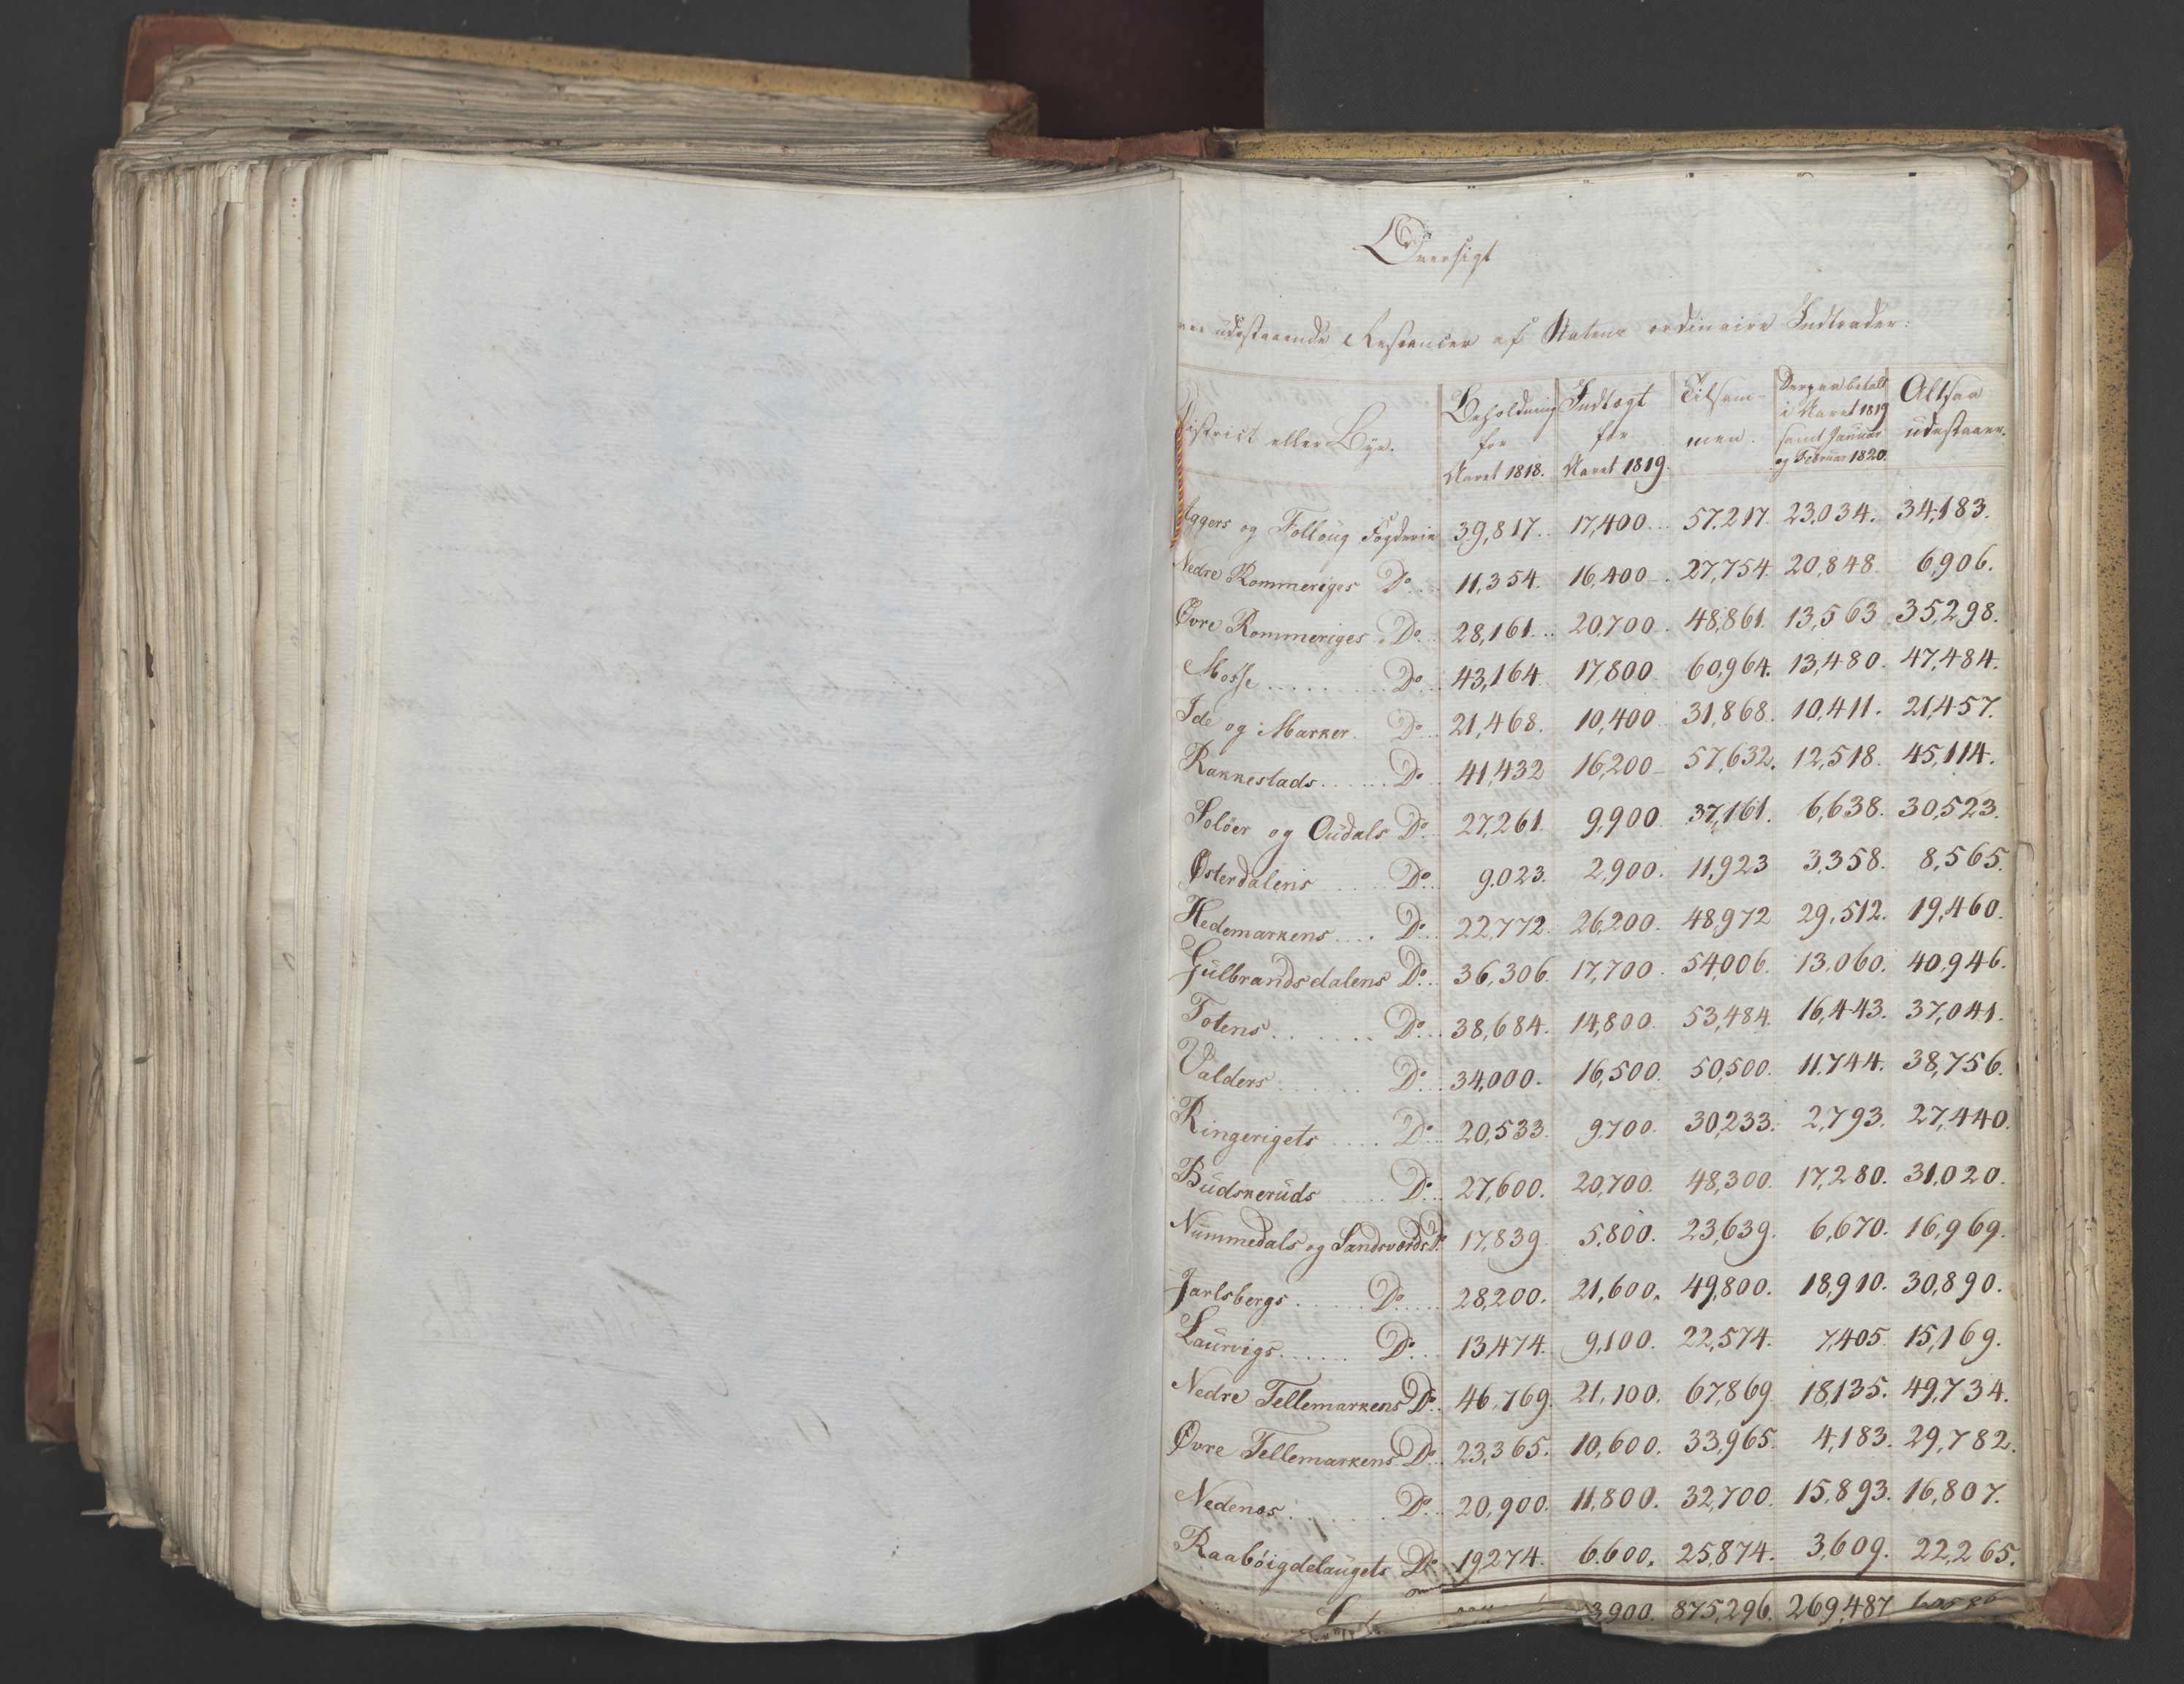 Oversigt
udestaaende Restancer af Statens ordinaire Indtrader:
District eller Bye. Beholdning for Aaret 1818. Indtægt for Aaret 1819. Tilsammen. Derpaa betalt i Aaret 1819 samt Januar og Februar 1820. Altsaa udestaaer.
Aggers og Folloug Fogderie 39,817. 17,400. 57,217. 23,034. 34,183.
Nedre Rommeriges Do. 11,354. 16,400. 27,754. 20,848. 6,906.
Øvre Rommeriges Do. 28,161. 20,700. 48,861. 13,563 35,298.
Mosse Do. 43,164. 17,800. 60,964. 13,480. 47,484.
Ide og Marker Do. 21,468. 10,400. 31,868. 10,411. 21,457.
Rakkestads Do. 41,432 16,200 57,632. 12,518. 45,114.
Soløer og Oudals Do. 27,261. 9,900. 37,161. 6,638. 30,523.
Østerdalens Do. 9,023. 2,900. 11,923 3,358. 8,565.
Hedemarkens Do. 22,772. 26,200. 48,972 29,512. 19,460.
Gulbrandsdalens Do. 36,306. 17,700. 54,006. 13,060. 40,946.
Totens Do. 38,684. 14,800. 53,484. 16,443. 37,041.
Valders Do. 34,000. 16,500. 50,500. 11,744. 38,756.
Ringerigets Do. 20,533. 9,700. 30,233. 2,793. 27,440.
Budskeruds Do. 27,600. 20,700. 48,300. 17,280. 31,020.
Nummedals og Sandsværds Do. 17,839. 5,800. 23,639. 6,670. 16,969.
Jarlsbergs Do. 28,200. 21,600. 49,800. 18,910. 30,890.
Laurvigs Do. 13,474. 9,100. 22,574. 7,405. 15,169.
Nedre Tellemarkens Do. 46,769. 21,100. 67,869. 18,135. 49,734.
Øvre Tellemarkens Do. 23,365. 10,600. 33,965. 4,183. 29,782.
Nedenæs Do. 20,900. 11,800. 32,700. 15,893. 16,807.
Raabøigdelaugets Do. 19,274. 6,600. 25,874. 3,609. 22,265.
3,900. 875,296. 269,487